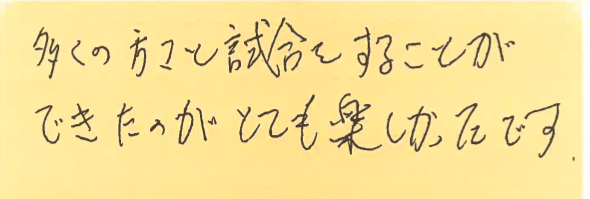 多くの方々と試合をすることが
できたのがとても楽しかったです.